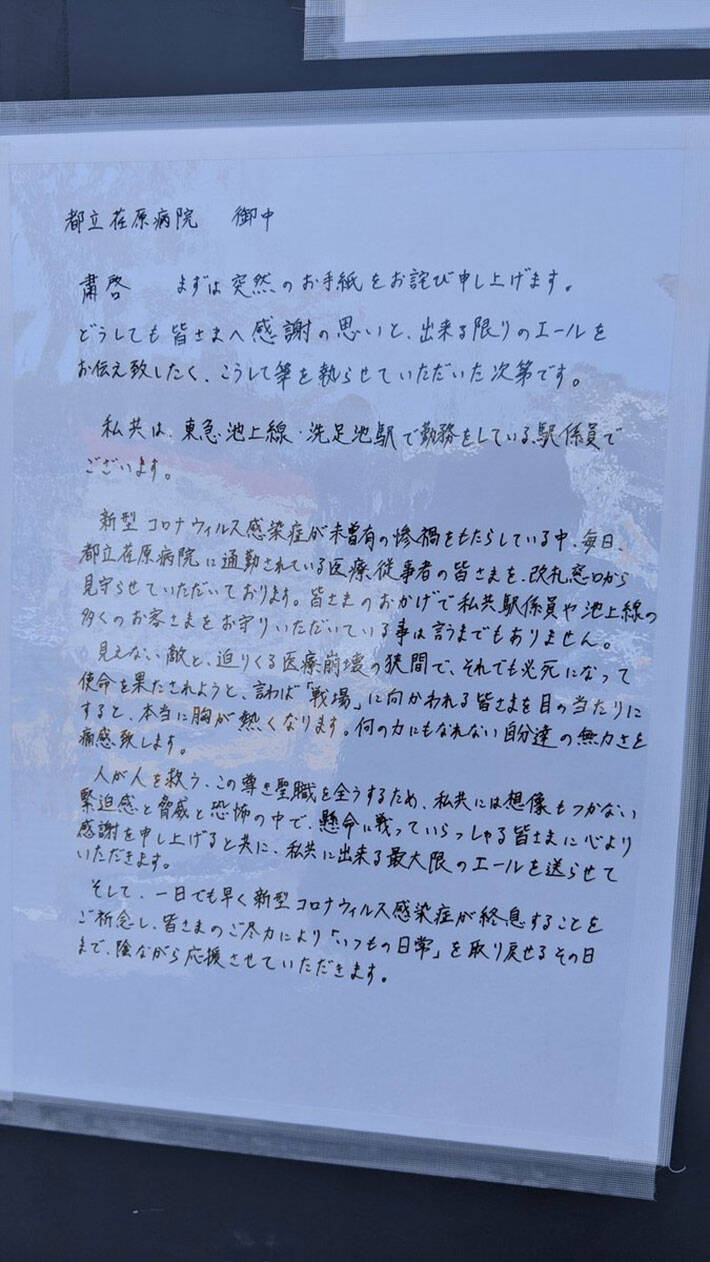 都立荏原病院　御中
粛啓　まずは突然のお手紙をお詫び申し上げます。
どうしても皆さまへ感謝の思いと、出来る限りのエールを
お伝え致したく、こうして筆を執らせていただいた次第です。
私共は、東急池上線・洗足池駅で勤務をしている駅係員で
ございます。
新型コロナウィルス感染症が未曾有の惨禍をもたらしている中、毎日、
都立荏原病院に通勤されている医療従事者の皆さまを、改札窓口から
見守らせていただいております。皆さまのおかげで私共駅係員や池上線の
多くのお客さまをお守りいただいている事は言うまでもありません。
見えない敵と、迫りくる医療崩壊の狭間で、それでも必死になって
使命を果たされようと、言わば「戦場」に向かわれる皆さまを目の当たりに
すると、本当に胸が熱くなります。何の力にもなれない自分達の無力さを
痛感致します。
人が人を救う、この尊き聖職を全うするため、私共には想像もつかない
緊迫感と脅威と恐怖の中で、懸命に戦っていらっしゃる皆さまに心より
感謝を申し上げると共に、私共に出来る最大限のエールを送らせて
いただきます。
そして、一日でも早く新型コロナウィルス感染症が終息することを
ご祈念し、皆さまのご尽力により「いつもの日常」を取り戻せるその日
まで、陰ながら応援させていただきます。